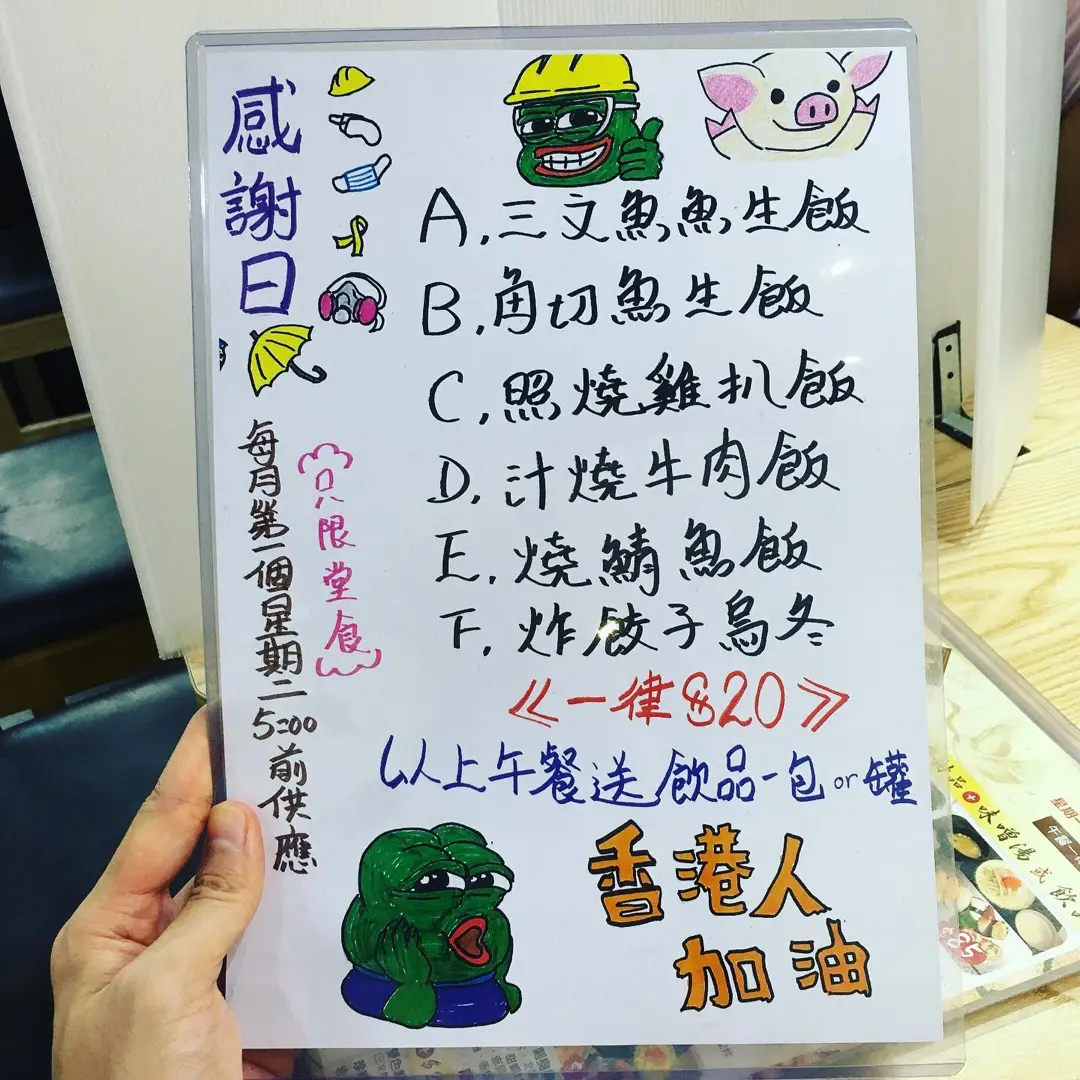 感謝日
每月第一個星期二5:00前供應
只限堂食
A.三文魚魚生飯
B.角切魚生飯
C.照燒雞扒飯
D.汁燒牛肉飯
E.燒鯖魚飯
F.炸餃子烏冬
《一律$20》
以上午餐送飲品一包or罐
香港人
加油
味噌湯或飲
星期